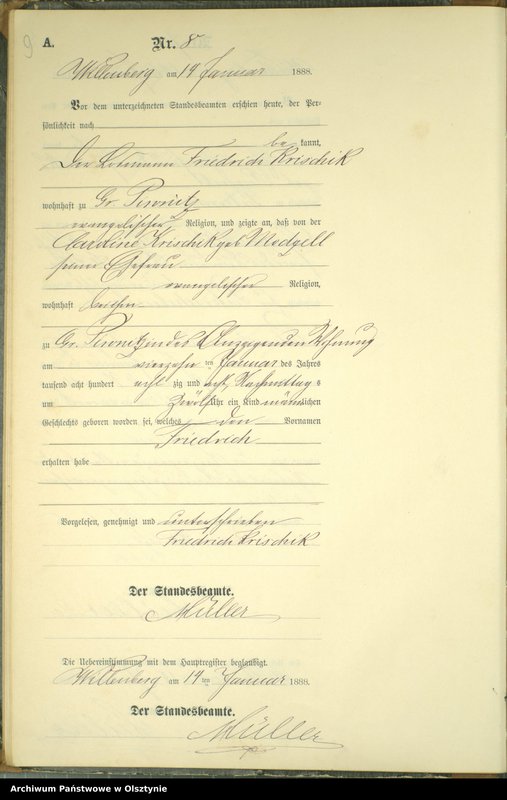 9
A.
Nr. 8
Willenberg am 14 Januar 1888.
Vor dem unterzeichneten Standesbeamten erschien heute, der Per-
sönlichkeit nach
be kannt,
Der Friedrich Krischik
wohnhaft zu Gr. Piwnitz
evangelischer Religion, und zeigte an, daß von der
Caroline Krischik geb
seiner Ehefrau
evangelischer Religion,
wohnhaft bei ihm
zu Gr. Piwnitz in des Wohnung
am vierzehn ten Januar des Jahres
tausend acht hundert acht zig und acht Nachmittags
um Zwölf Uhr ein Kind männlichen
Geschlechts geboren worden sei, welches den Vornamen
Friedrich
erhalten habe
Vorgelesen, genehmigt und unterschrieben
Friedrich Krischik
Der Standesbeamte.
Müller
Die Uebereinstimmung mit dem Hauptregister beglaubigt.
Willenberg am 14 ten Januar 1888.
Der Standesbeamte.
Müller
Archiwum Państwowe w Olsztynie